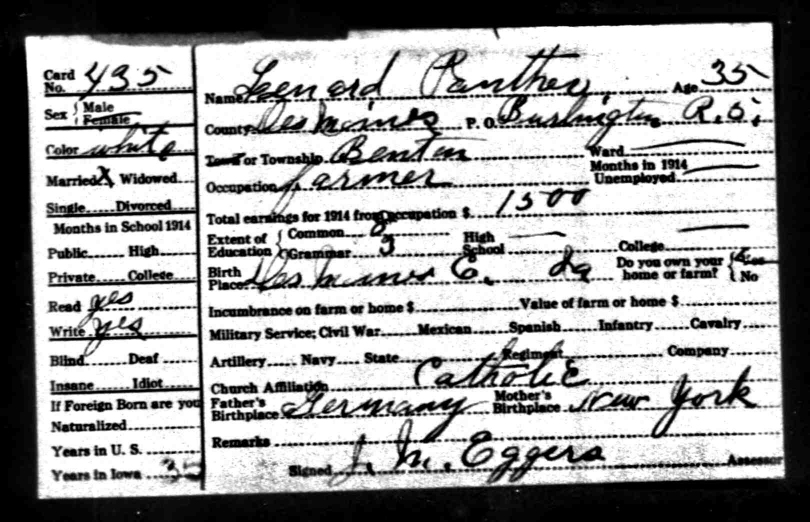 Card No. 435
Sex { Male Female
Color white
Married X Widowed
Single Divorced
Months in School 1914
Public High
Private College
Read yes
Write yes
Blind Deaf
Insane Idiot
If Foreign Born are you
Naturalized
Years in U. S.
Years in Iowa 35
Name Lenard Panther Age 35
County Des Moines P. O. Burlington R.5.
Town or Township Benton Ward
Occupation farmer Months in 1914 Unemployed
Total earnings for 1914 from occupation $ 1500
Extent of Education { Common 8 High School College
Grammar
Birth Place Des Moines Ia Do you own your home or farm? { Yes No
Incumbrance on farm or home $ Value of farm or home $
Military Service; Civil War Mexican Spanish Infantry Cavalry
Artillery Navy State Regiment Company
Church Affiliation Catholic
Father's Birthplace Germany Mother's Birthplace New York
Remarks
Signed J. M. Eggers Assessor